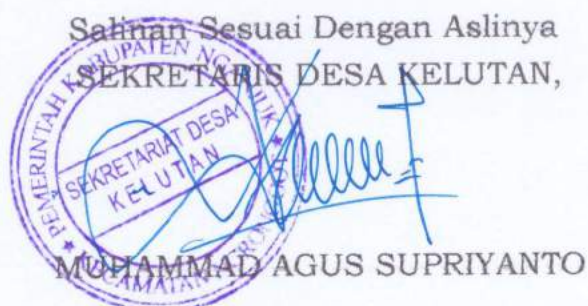 Salinan Sesuai Dengan Aslinya
SEKRETARIS DESA KELUTAN,
PEMERINTAH KABUPATEN
SEKRETARIAT DESA
KELUTAN
KECAMATAN
MUHAMMAD AGUS SUPRIYANTO